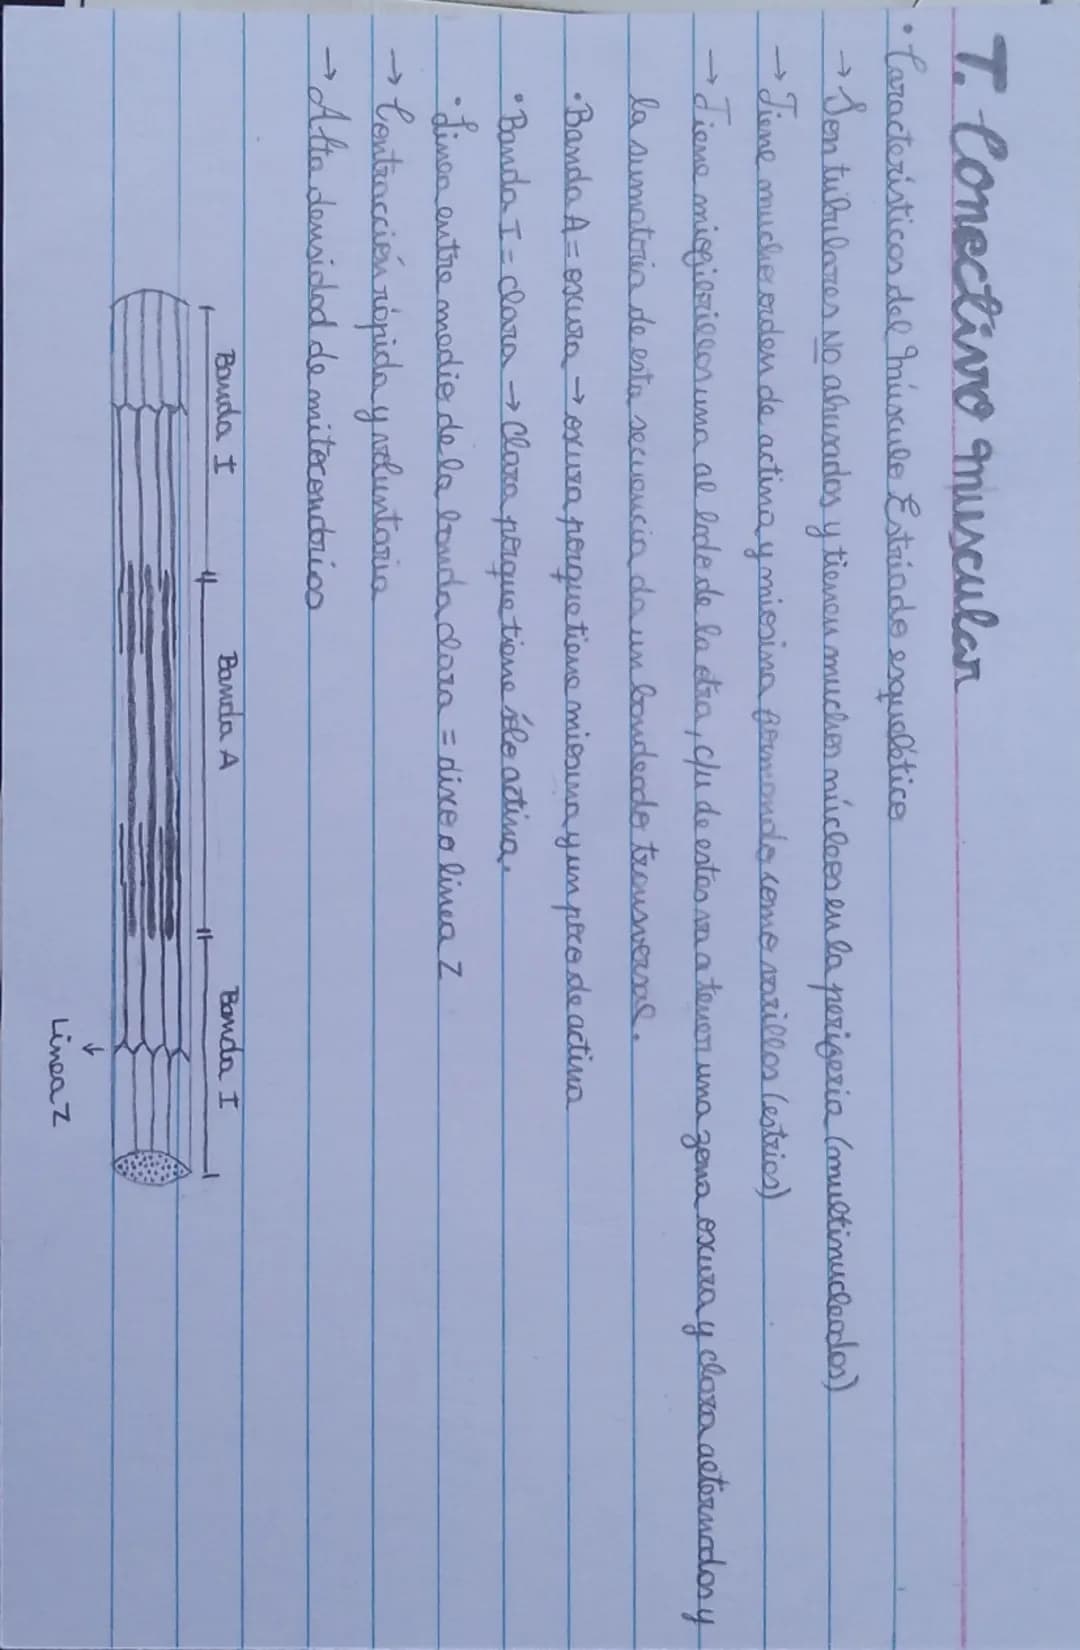 T. Conectivo muscular
• Características del músculo Estriado esquelético
→ Son tubulares NO ahusados y tienen muchos núcleos en la periferia (multinucleados)
→ Tiene mucho orden de actina y miosina formando como varillas (estrias)
→ Tiene miofibrillas una al lado de la otra, c/u de estas va a tener una zona oscura y clara alternadas y
la sumatoria de esta secuencia da un bandeado transversal.
• Banda A = oscura → oscura porque tiene miosina y un poco de actina
• Banda I = clara → Clara porque tiene sólo actina.
• Linea entre medio de la banda clara = disco o linea Z
→ Contracción rápida y voluntaria
→ Alta densidad de mitocondrias
Banda I Banda A Banda I
↓
Linea Z